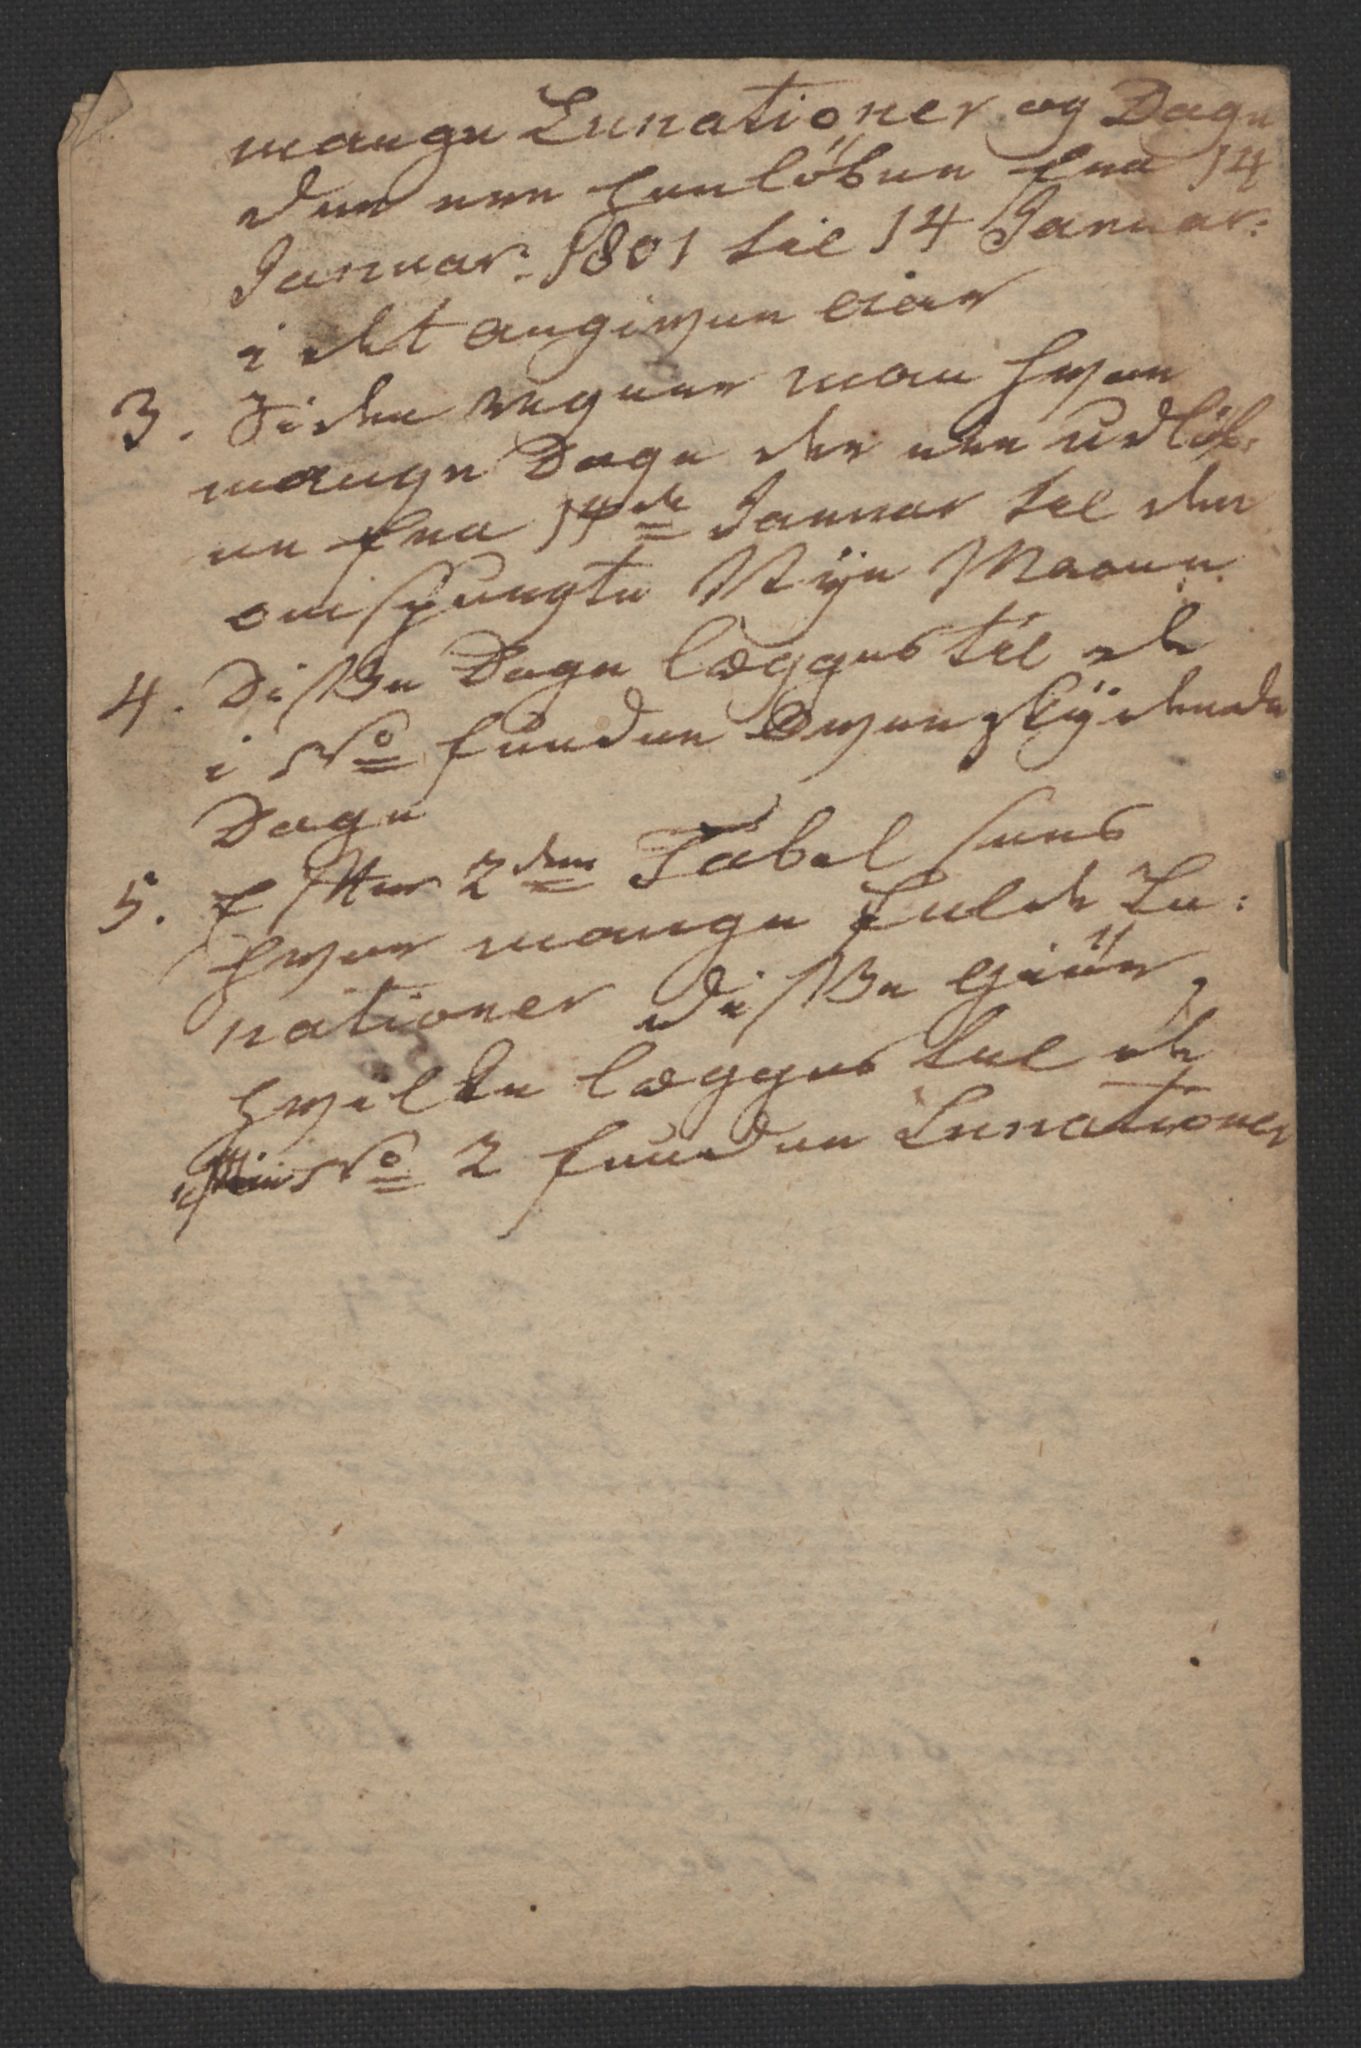 mange Lunationer og Dage
der ere henløbne fra 14
Januar: 1801 til 14 Januar:
i det angivne Aar
3. Siden regner man hvor
mange Dage der ere udløb:
ne fra 14de Januar til den
omspurgte Nÿe Maane.
4. Disse Dage lægges til de
i No fundne Overskÿdende
Dage
5. Efter 2den Tabel sees
hvor mange fulde Lu:
nationer disse giør,
hvilke lægges til de
No 2 fundne Lunationer